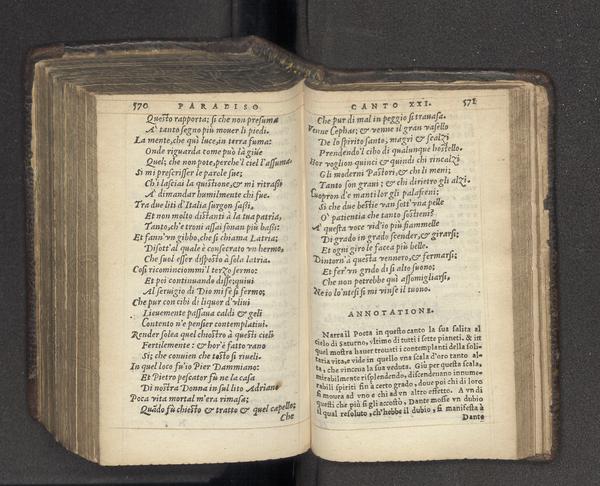 570 PARADISO
Questo rapporta; si che non presuma
A' tanto segno più mouer li piedi.
La mente, che quì luce, in terra fuma:
Onde riguarda come può là giùe
Quel; che non pote, perche 'l ciel l'assuma.
Si mi prescrisser le parole sue;
Ch'i lasciai la quistione, & mi ritrassi
A' dimandar humilmente chi fue.
Tra due liti d'Italia surgon sassi,
Et non molto distanti à la tua patria,
Tanto, ch'e troni assai sonan più bassi:
Et fann'vn gibbo, che si chiama Latria;
Disott'al quale è consecrato vn hermo,
Che suol esser disposto à sola latria.
Così ricominciommi'l terzo sermo:
Et poi continuando disse; quiui
Al seruigio di Dio mi fe si fermo;
Che pur con cibi di liquor d'vliui
Lieuemente passaua caldi & geli
Contento n'e pensier contemplatiui.
Render solea quel chiostro à questi cieli
Fertilemente: & hor'è fatto vano
Si; che conuien che tosto si riueli.
In quel loco fu'io Pier Dammiano:
Et Pietro peccator fù ne la casa
Di nostra Donna in sul lito Adriano
Poca vita mortal m'era rimasa;
Quãdo fù chiesto & tratto & quel capello;
Che
CANTO XXI. 571
Che pur di mal in peggio si trauasa.
Venne Cephas; & venne il gran vasello
De lo spirito santo, magri & scalzi
Prendendo'l cibo di qualunque hostello.
Hor voglion quinci & quindi chi rincalzi
Gli moderni Pastori, & chi li meni;
Tanto son graui; & chi dirietro gli alzi.
Cuopron d'e manti lor gli palafreni;
Si che due bestie van sott'vna pelle
O' patientia che tanto sostieni!
A' questa voce vid'io più fiammelle
Di grado in grado scender, & girarsi;
Et ogni giro le facea più belle.
Dintorn'à questa vennero, & fermarsi;
Et fer'vn grido di sì alto suono;
Che non potrebbe quì assomigliarsi.
Ne io lo'ntesi si mi vinse il tuono.
ANNOTATIONE.
Narra il Poeta in questo canto la sua salita al
cielo di Saturno, vltimo di tutti i sette pianeti. & in
quel mostra hauer trouati i contemplanti della soli-
taria vita, e vide in quello vna scala d'oro tanto al-
ta, che vincena la sua veduta. Giù per questa scala,
mirabilmente risplendendo, discendeuano innume-
rabili spiriti fin à certo grado, doue poi chi di loro
si moura ad vno e chi ad vn altro effetto. A vn di
questi che più si gli accostò, Dante mosse vn dubio
il qual resoluto, ch'hebbe il dubio, si manifesta à
Dante